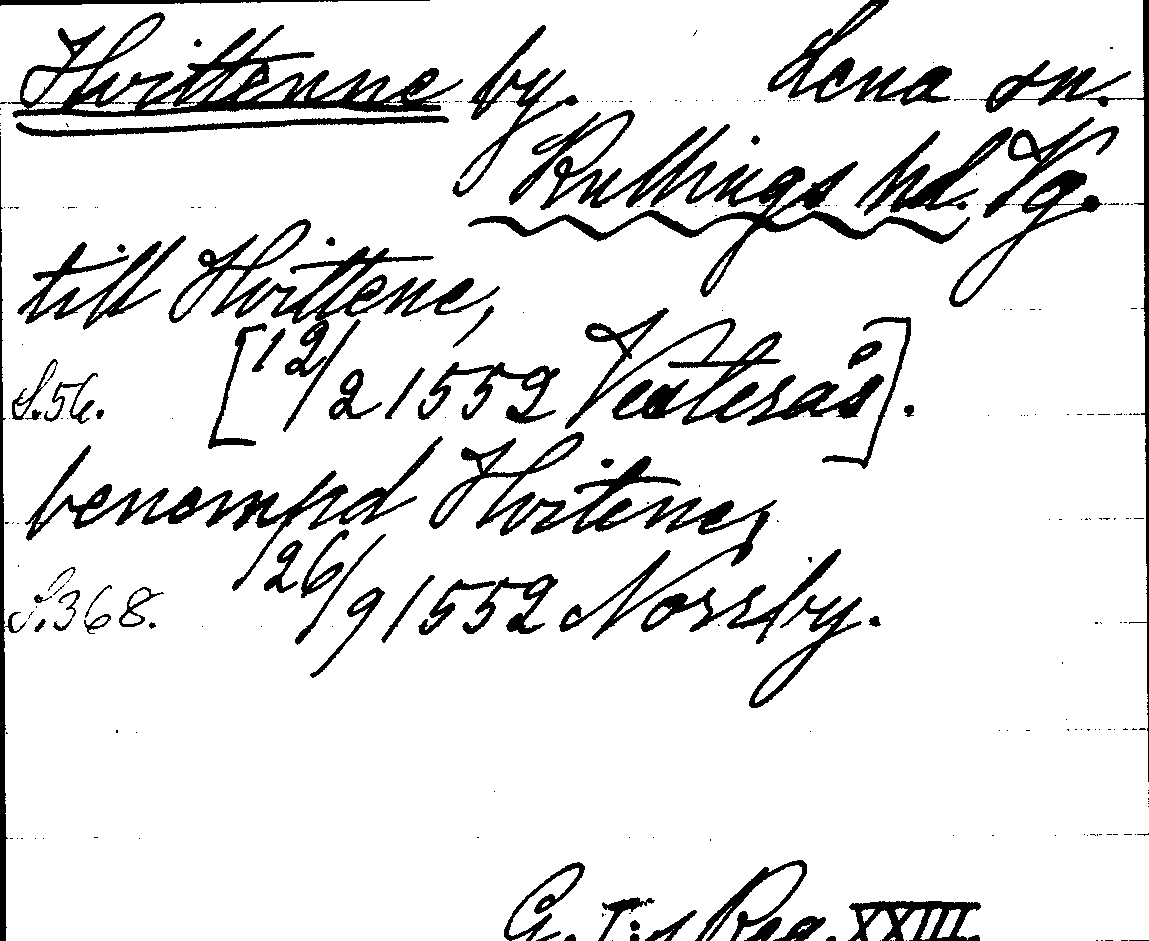 Hvittenne by. Lena sn.
Kullings hd. Vg.
till Hvittene,
S.56. [12/2 1552 Vesterås].
benempd Hvitene,
S.368. 26/9 1552 Norrby.
G. I:s Reg. XXIII.